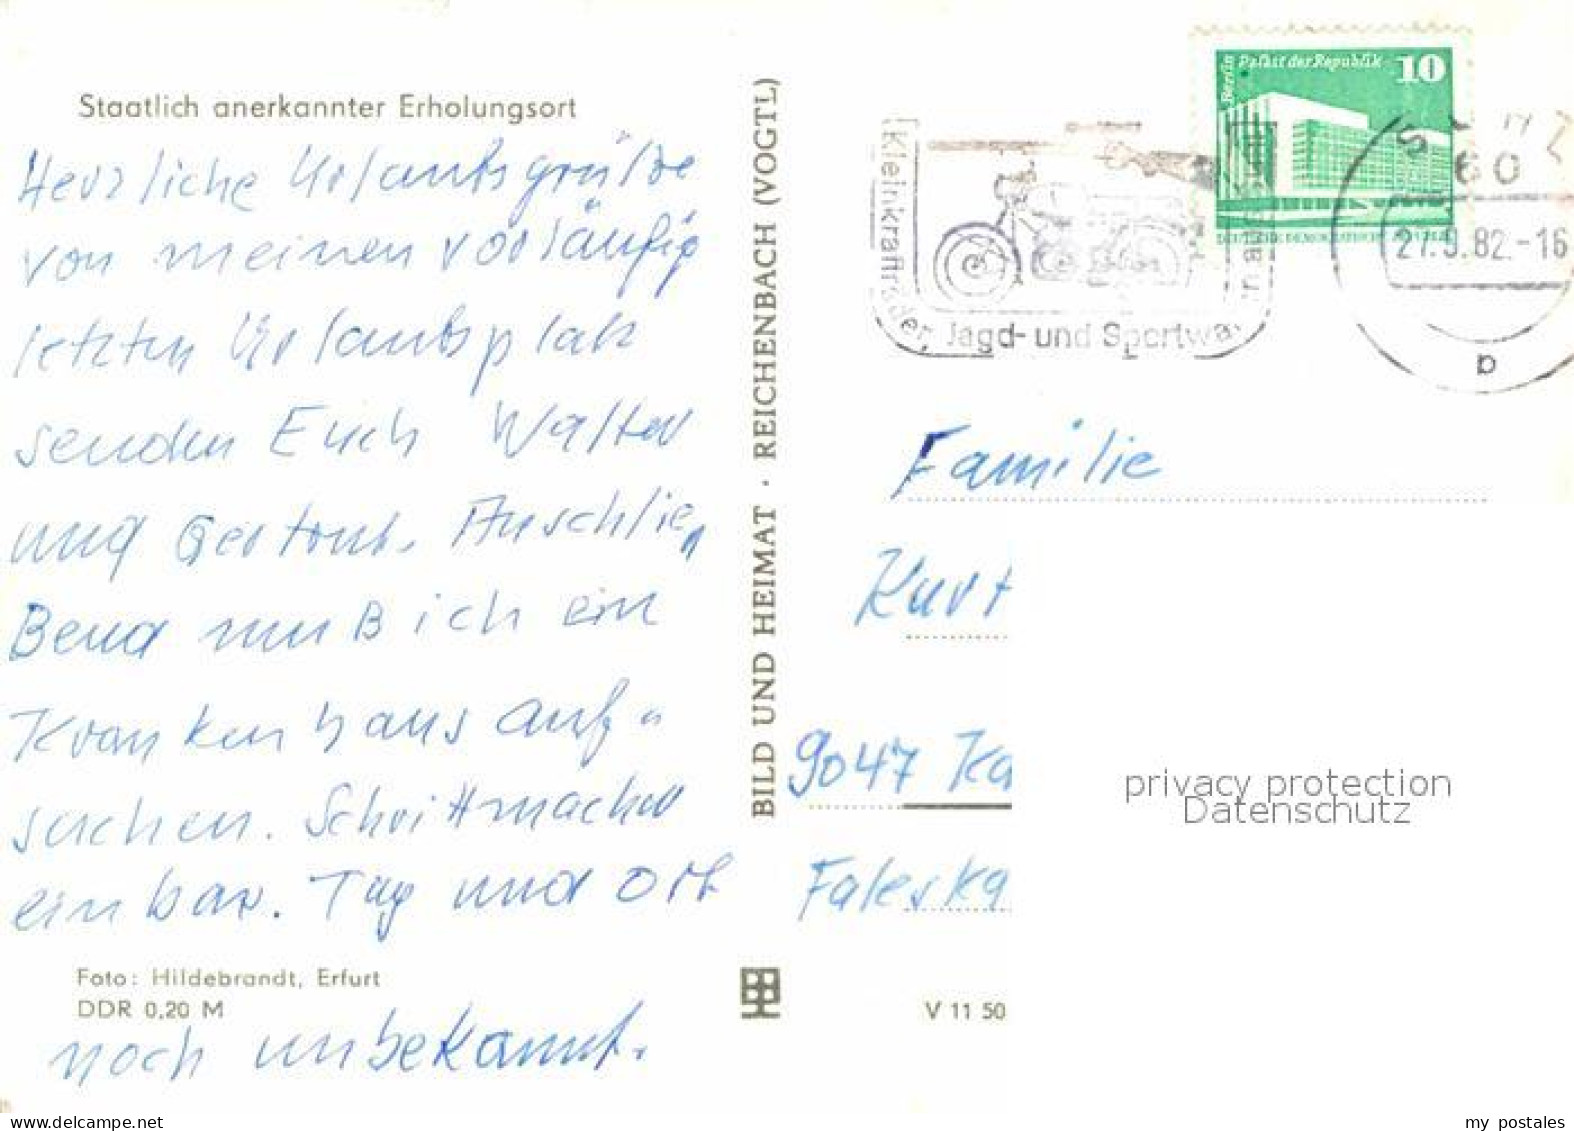 Staatlich anerkannter Erholungsort
Herzliche Urlaubsgrüße
von meinen vorläufig
letzten Urlaubsplatz
senden Euch Walter
und Gertrud. Anschlie,
ßend muß ich ein
Krankenhaus auf-
suchen. Schrittmacher
einbau. Tag und Ort
noch unbekannt.
Foto: Hildebrandt, Erfurt
DDR 0,20 M
BILD UND HEIMAT · REICHENBACH (VOGTL)
V 11 50
Berlin Palast der Republik 10
Kleinkrafträder, Jagd- und Sportwa
60
27.9.82.-16
Familie
Kurt
9047 Ka
Faleska
privacy protection
Datenschutz
my postales